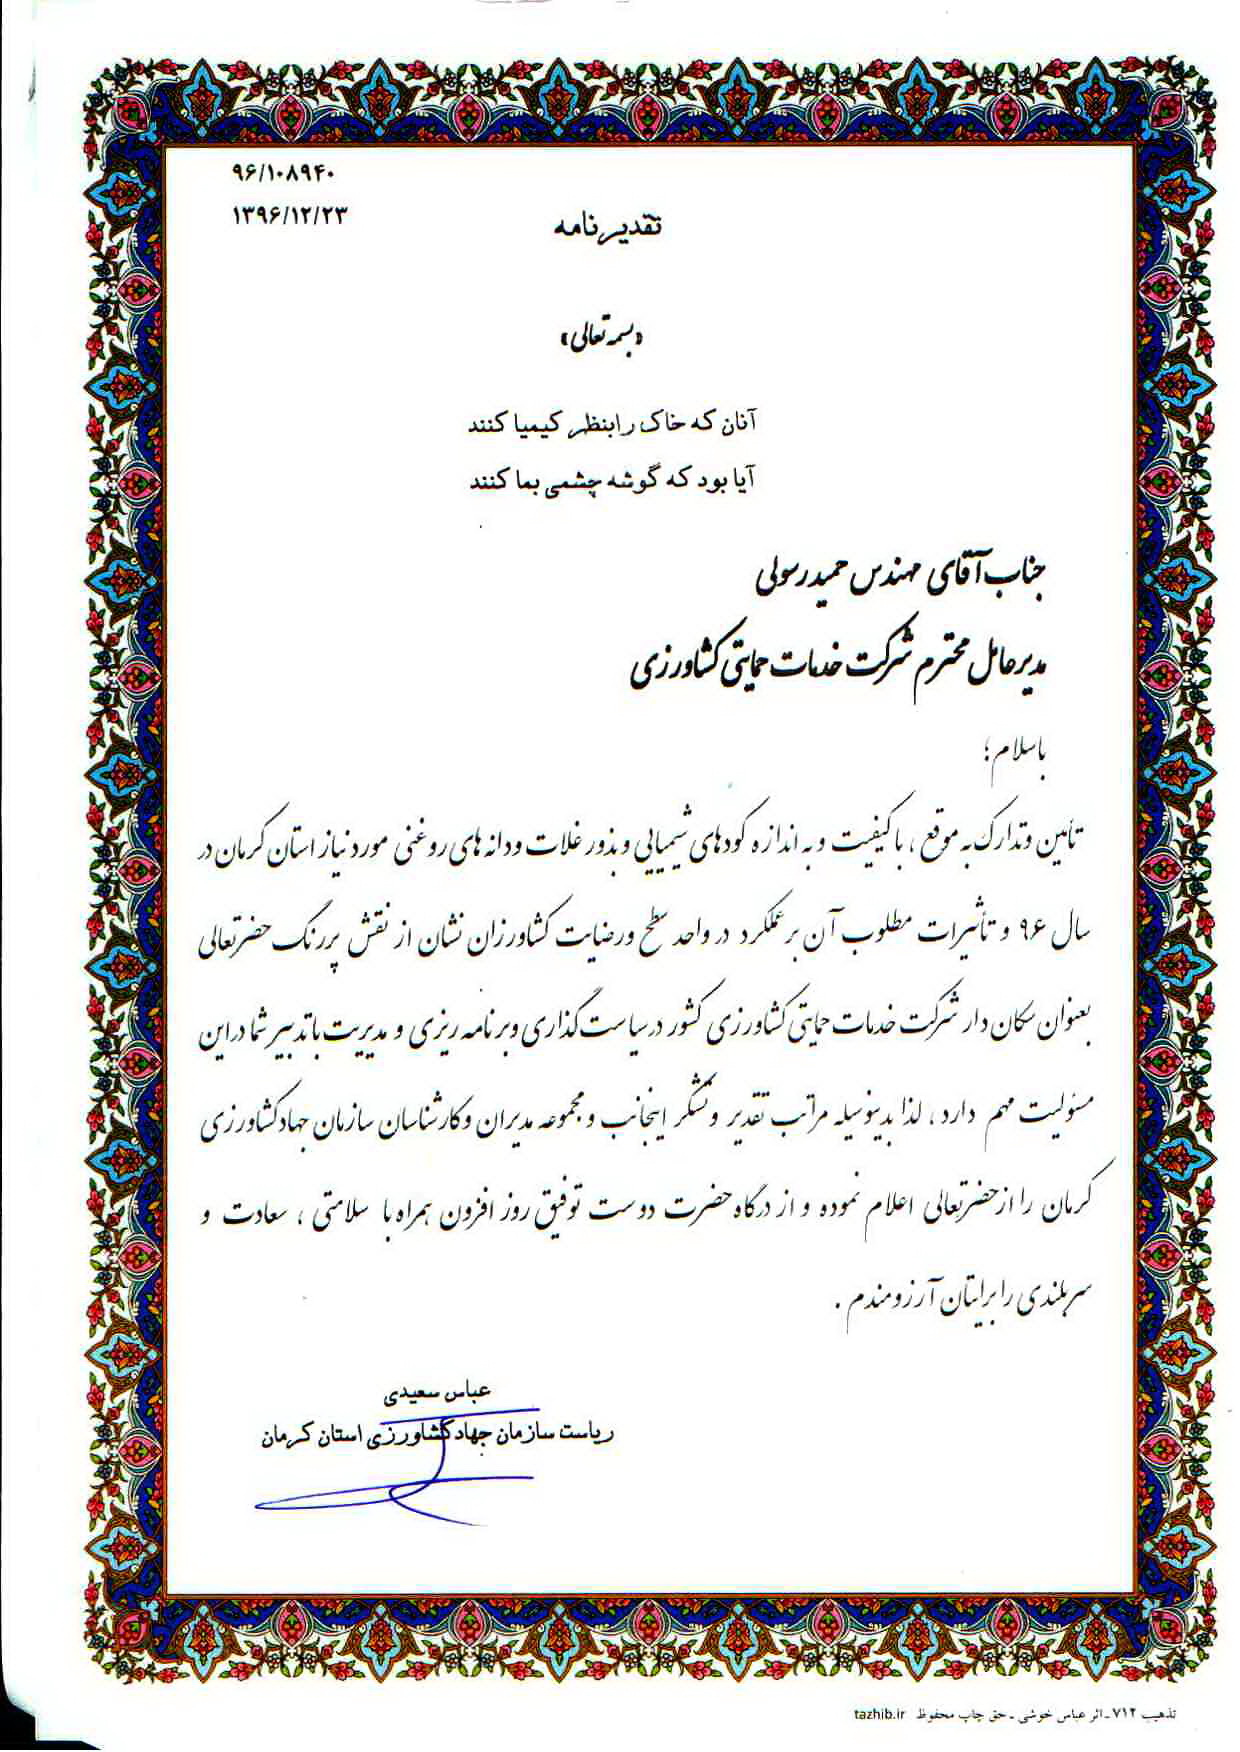 ۹۶/۱۰۸۹۴۰
۱۳۹۶/۱۲/۲۳
تقدیرنامه
«بسمه تعالی»
آنان که خاک رابنظر کیمیا کنند
آیا بود که گوشه چشمی بما کنند
جناب آقای مهندس حمید رسولی
مدیرعامل محترم شرکت خدمات حمایتی کشاورزی
باسلام؛
تأمین وتدارک به موقع ، با کیفیت و به اندازه کودهای شیمیایی و بذور غلات ودانه های روغنی مورد نیاز استان کرمان در
سال ۹۶ و تأثیرات مطلوب آن بر عملکرد در واحد سطح ورضایت کشاورزان نشان از نقش پررنگ حضرتعالی
بعنوان سکان دار شرکت خدمات حمایتی کشاورزی کشور درسیاست گذاری وبرنامه ریزی و مدیریت با تدبیر شما دراین
مسئولیت مهم دارد ، لذا بدینوسیله مراتب تقدیر و تشکر اینجانب و مجموعه مدیران وکارشناسان سازمان جهادکشاورزی
کرمان را ازحضرتعالی اعلام نموده و از درگاه حضرت دوست توفیق روز افزون همراه با سلامتی ، سعادت و
سربلندی را برایتان آرزومندم .
عباس سعیدی
ریاست سازمان جهادکشاورزی استان کرمان
تذهیب ۷۱۲ـ اثر عباس خوشی ـ حق چاپ محفوظ tazhib.ir